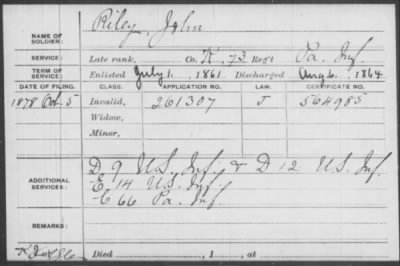 NAME OF SOLDIER: Riley, John
SERVICE: Late rank, Co. K, 73 Reg't Pa. Inf.
TERM OF SERVICE: Enlisted July 1, 1861 Discharged Aug 6, 1864
DATE OF FILING. CLASS. APPLICATION NO. LAW. CERTIFICATE NO.
1878 Oct. 5 Invalid, 261307 J 564985
Widow,
Minor,
ADDITIONAL SERVICES: D 9 U.S. Inf. & D 12 U.S. Inf.
E 14 U.S. Inf.
C 66 Pa. Inf.
REMARKS:
Died , 1 , at